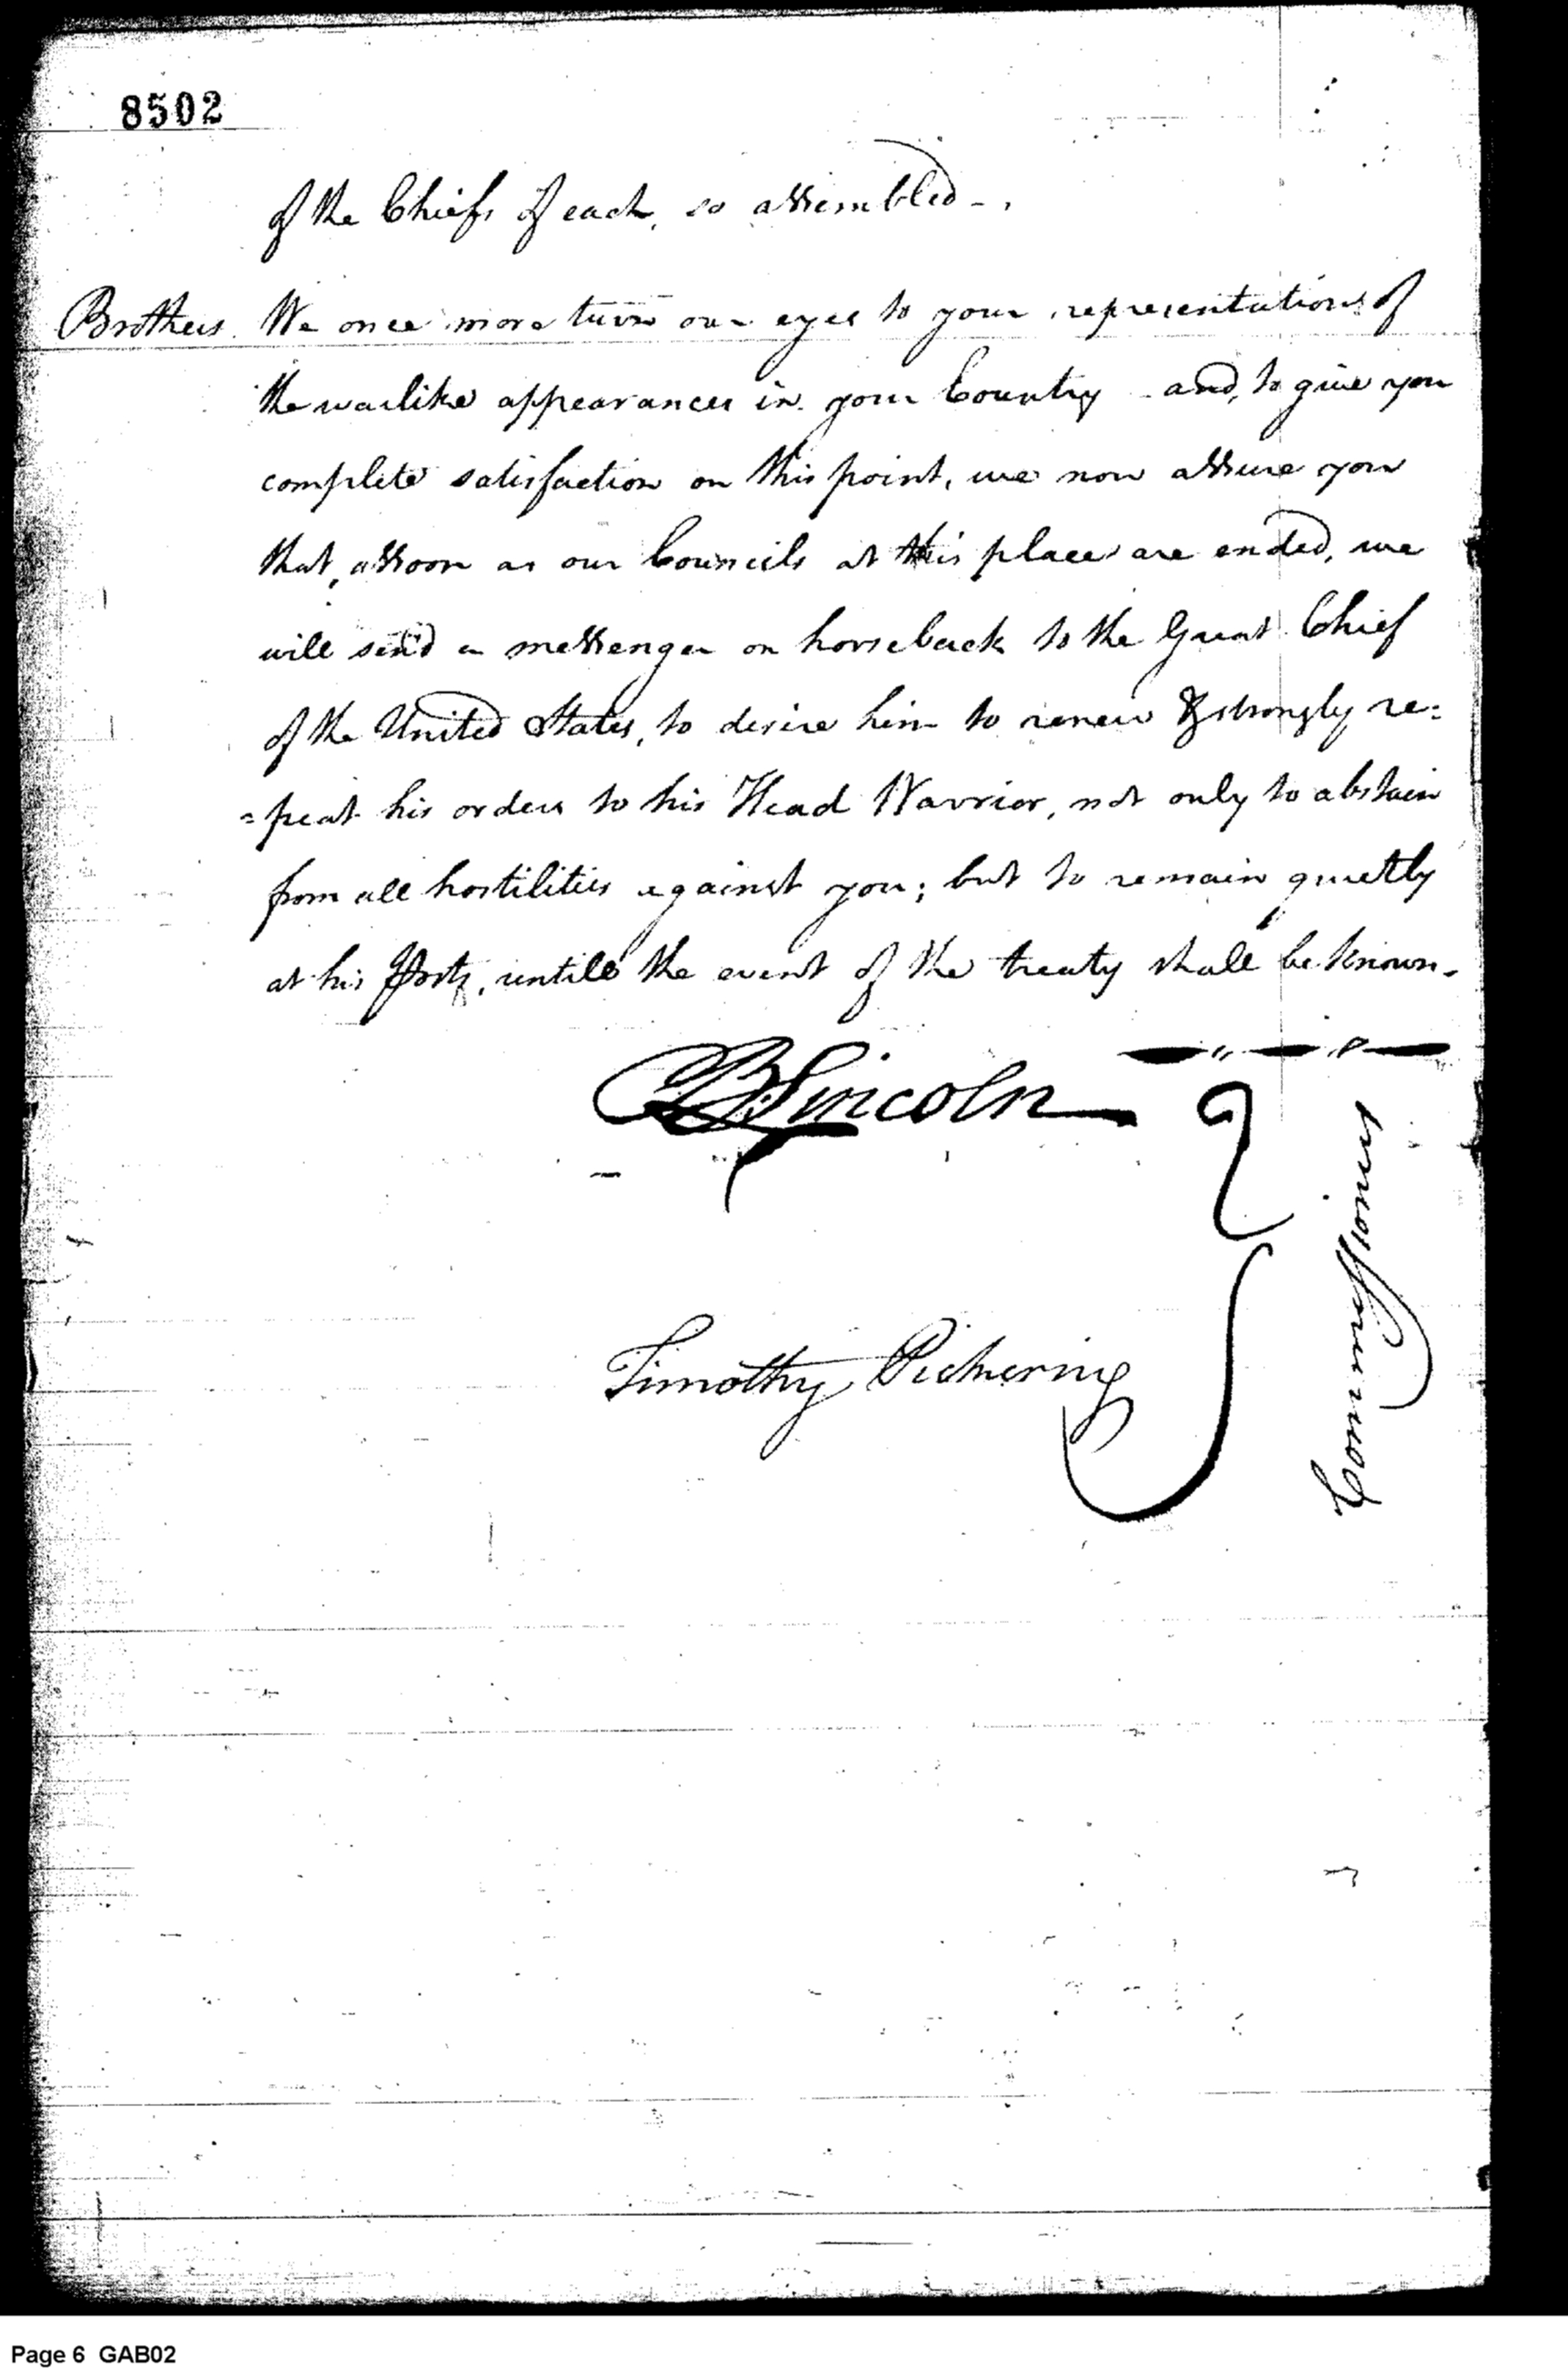 8502
of the Chiefs of each, so assembled -.
Brothers. We once more turn our eyes to your representations of
the warlike appearances in your Country - and, to give you
complete satisfaction on this point, we now assure you
that, assoon as our Councils at this place are ended, we
will send a messenger on horseback to the Great Chief
of the United States, to desire him to renew & strongly re=
=peat his orders to his Head Warrior, not only to abstain
from all hostilities against you; but to remain quietly
at his Posts, untill the event of the treaty shall be known-
B Lincoln
Timothy Pickering
Commissioners
Page 6 GAB02